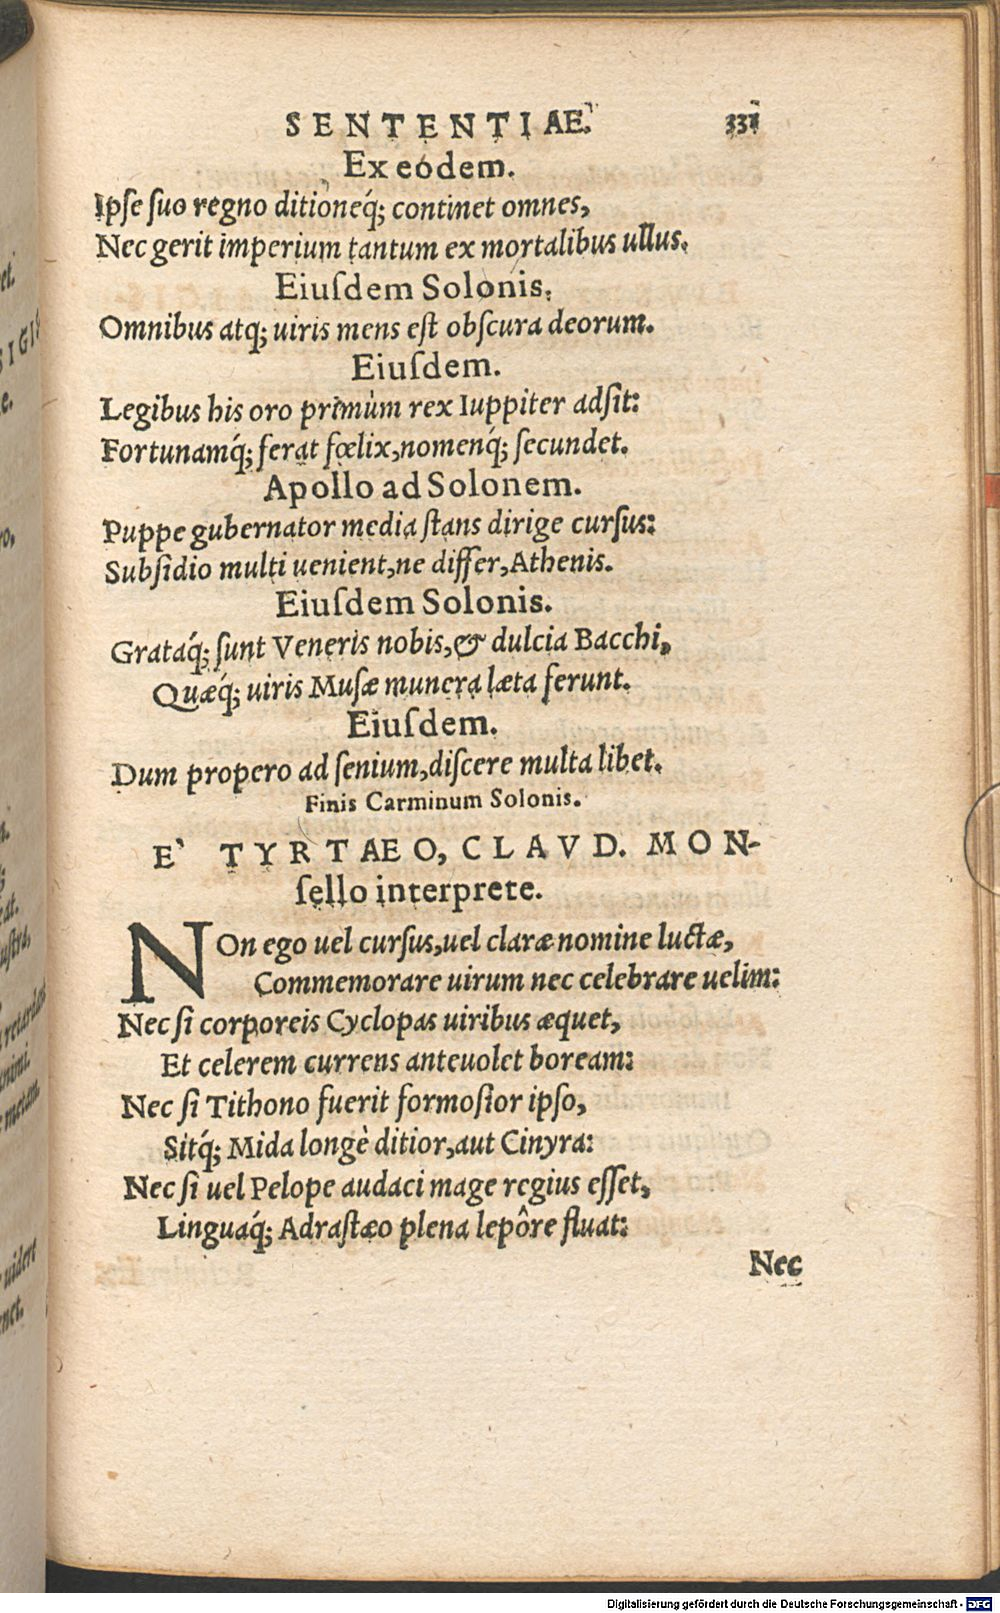 SENTENTIAE. 331
Ex eodem.
Ipse suo regno ditioneq́; continet omnes,
Nec gerit imperium tantum ex mortalibus ullus.
Eiusdem Solonis.
Omnibus atq; uiris mens est obscura deorum.
Eiusdem.
Legibus his oro primùm rex Iuppiter adsit:
Fortunamq́; ferat fœlix, nomenq́; secundet.
Apollo ad Solonem.
Puppe gubernator media stans dirige cursus:
Subsidio multi uenient, ne differ, Athenis.
Eiusdem Solonis.
Grataq́; sunt Veneris nobis, & dulcia Bacchi,
Quæq́; uiris Musæ munera læta ferunt.
Eiusdem.
Dum propero ad senium, discere multa libet.
Finis Carminum Solonis.
E` TYRTAEO, CLAVD. MON-
sello interprete.
NOn ego uel cursus, uel claræ nomine luctæ,
Commemorare uirum nec celebrare uelim:
Nec si corporeis Cyclopas uiribus æquet,
Et celerem currens anteuolet boream:
Nec si Tithono fuerit formosior ipso,
Sitq́; Mida longè ditior, aut Cinyra:
Nec si uel Pelope audaci mage regius esset,
Linguaq́; Adrastæo plena lepôre fluat:
Nec
Digitalisierung gefördert durch die Deutsche Forschungsgemeinschaft - DFG